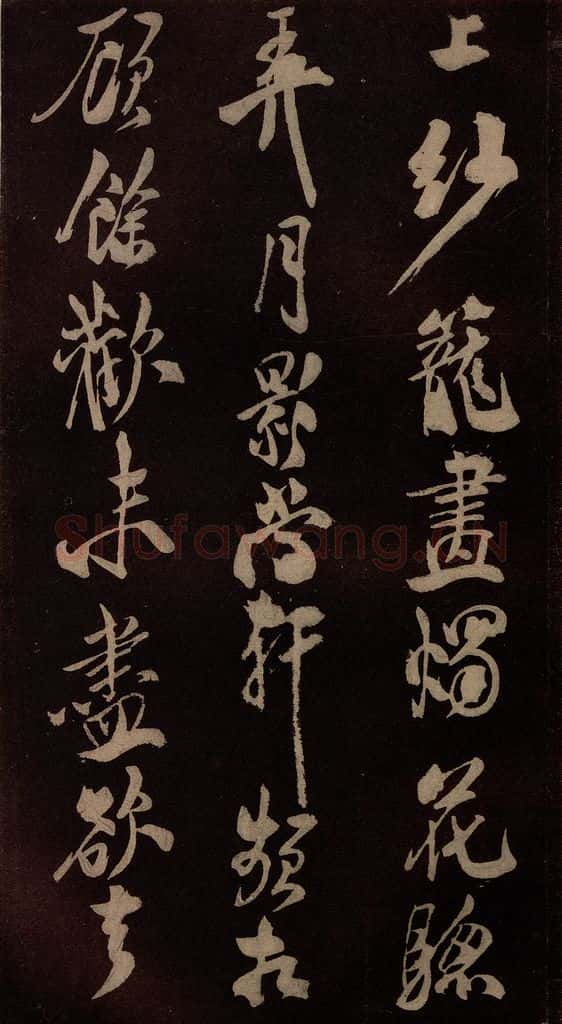 上紗籠畫燭花驄
弄月影當軒頻相
顧餘歡未盡欲去
Shufawang.cn